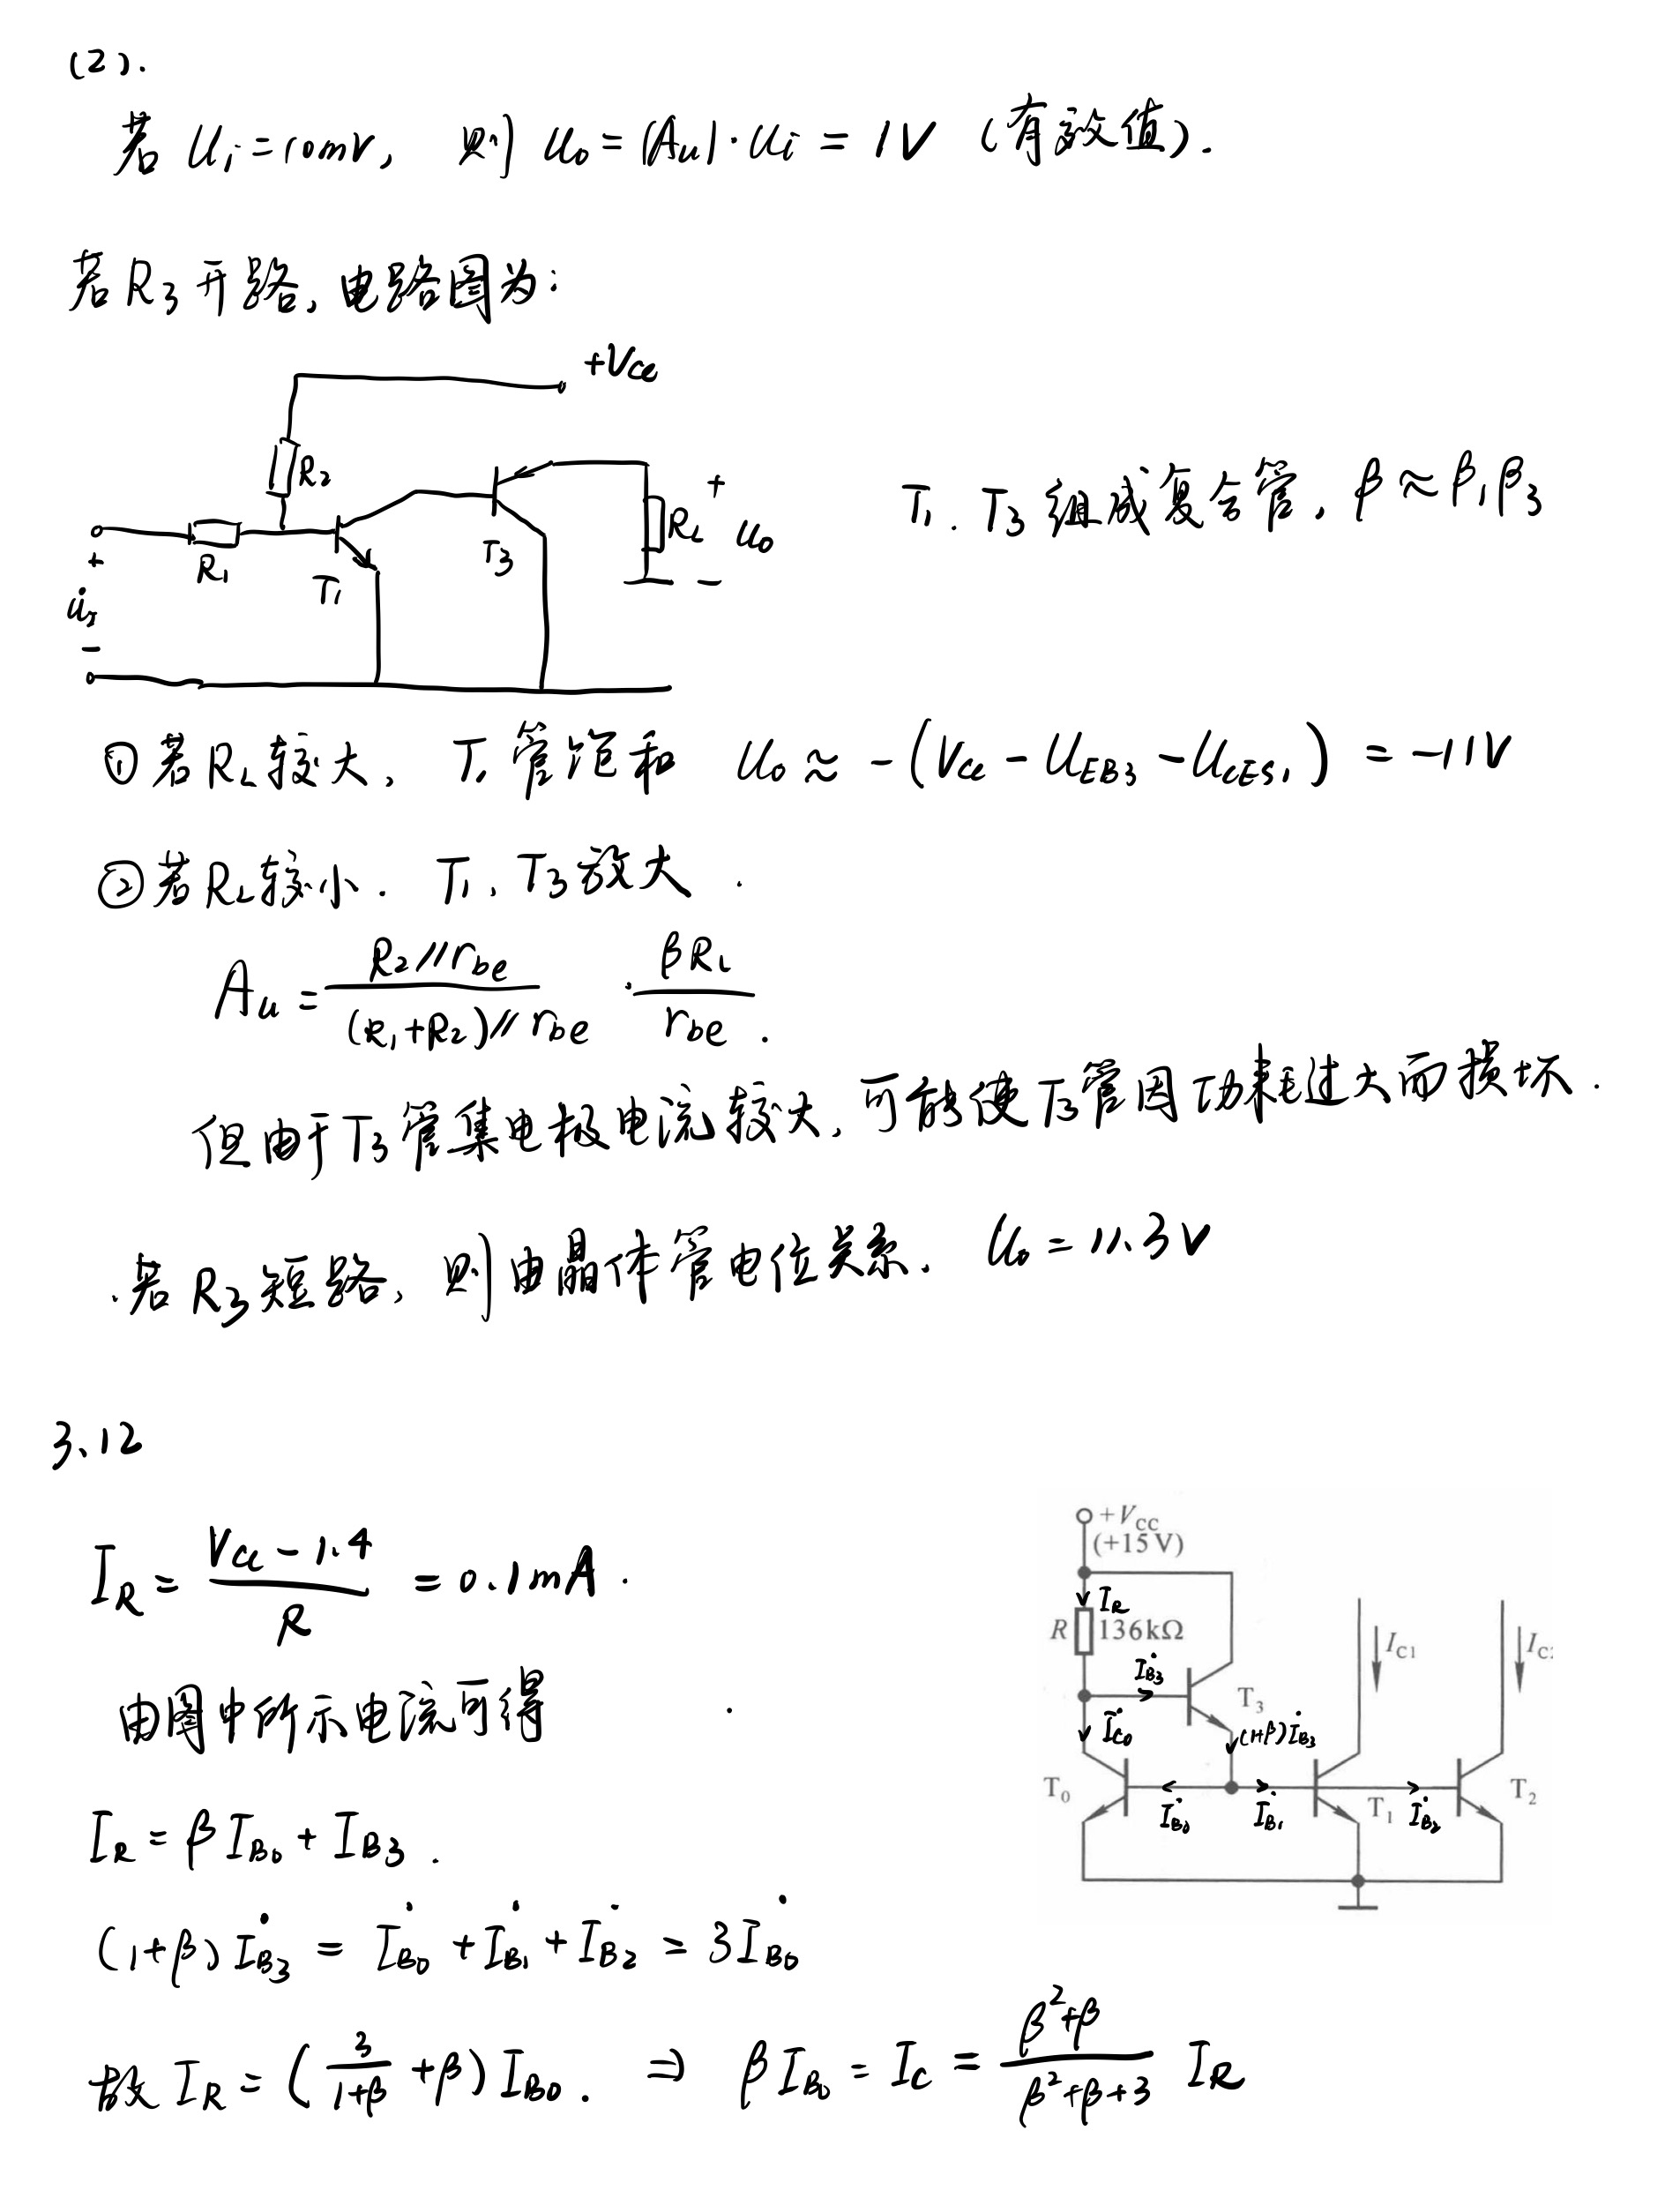 (2).
若 Ui=10mV, 则 Uo=|Au|·Ui=1V (有效值).
若R3开路,电路图为:
+Vcc
R2
R1
T1
T3
RL
+
uo
−
+
u̇I
−
T1. T3组成复合管, β≈β1β3
①若RL较大, T1管饱和 Uo≈-(Vcc-UEB3-UCES1)=-11V
②若RL较小. T1, T3放大.
Au=R2//rbe/(R1+R2)//rbe · βRL/rbe.
但由于T3管集电极电流较大,可能使T3管因功耗过大而损坏.
若R3短路, 则由晶体管电位关系. Uo=11.3V
3.12
IR=(Vcc-1.4)/R=0.1mA.
由图中所示电流可得
IR=βIB0+IB3.
(1+β)İB3=İB0+İB1+İB2=3İB0
故IR=(3/(1+β)+β)IB0. ⇒ βIB0=IC=(β²+β)/(β²+β+3) IR
+VCC
(+15V)
IR
R 136kΩ
İB3
T3
İC0
(1+β)İB3
IC1
IC
T0
İB0
İB1
T1
İB2
T2